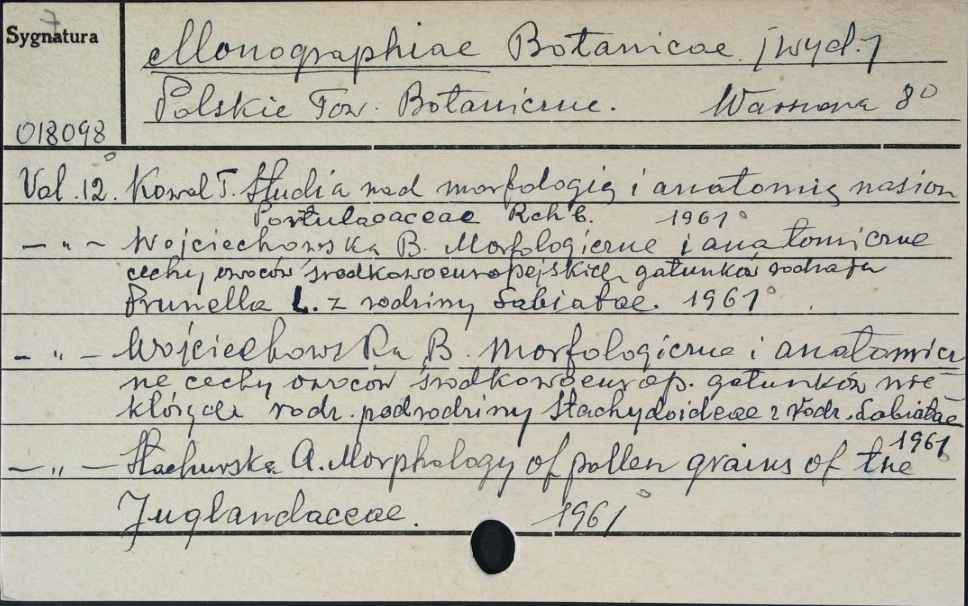 7
Sygnatura
Monographiae Botanicae. [wyd.]
Polskie Tow. Botaniczne. Warszawa 8°
018098
Vol. 12. Kowal T. Studia nad morfologią i anatomią nasion
Portulacaceae Rchb. 1961°
— " — Wojciechowska B. Morfologiczne i anatomiczne
cechy owoców środkowoeuropejskich gatunków rodzaju
Prunella L. z rodziny Labiatae. 1961°
— " — Wojciechowska B. Morfologiczne i anatomicz
ne cechy owoców środkowoeurop. gatunków nie
których rodz. podrodziny Stachydoideae z rodz. Labiatae
1961°
— " — Stachurska A. Morphology of pollen grains of the
Juglandaceae. 1961°